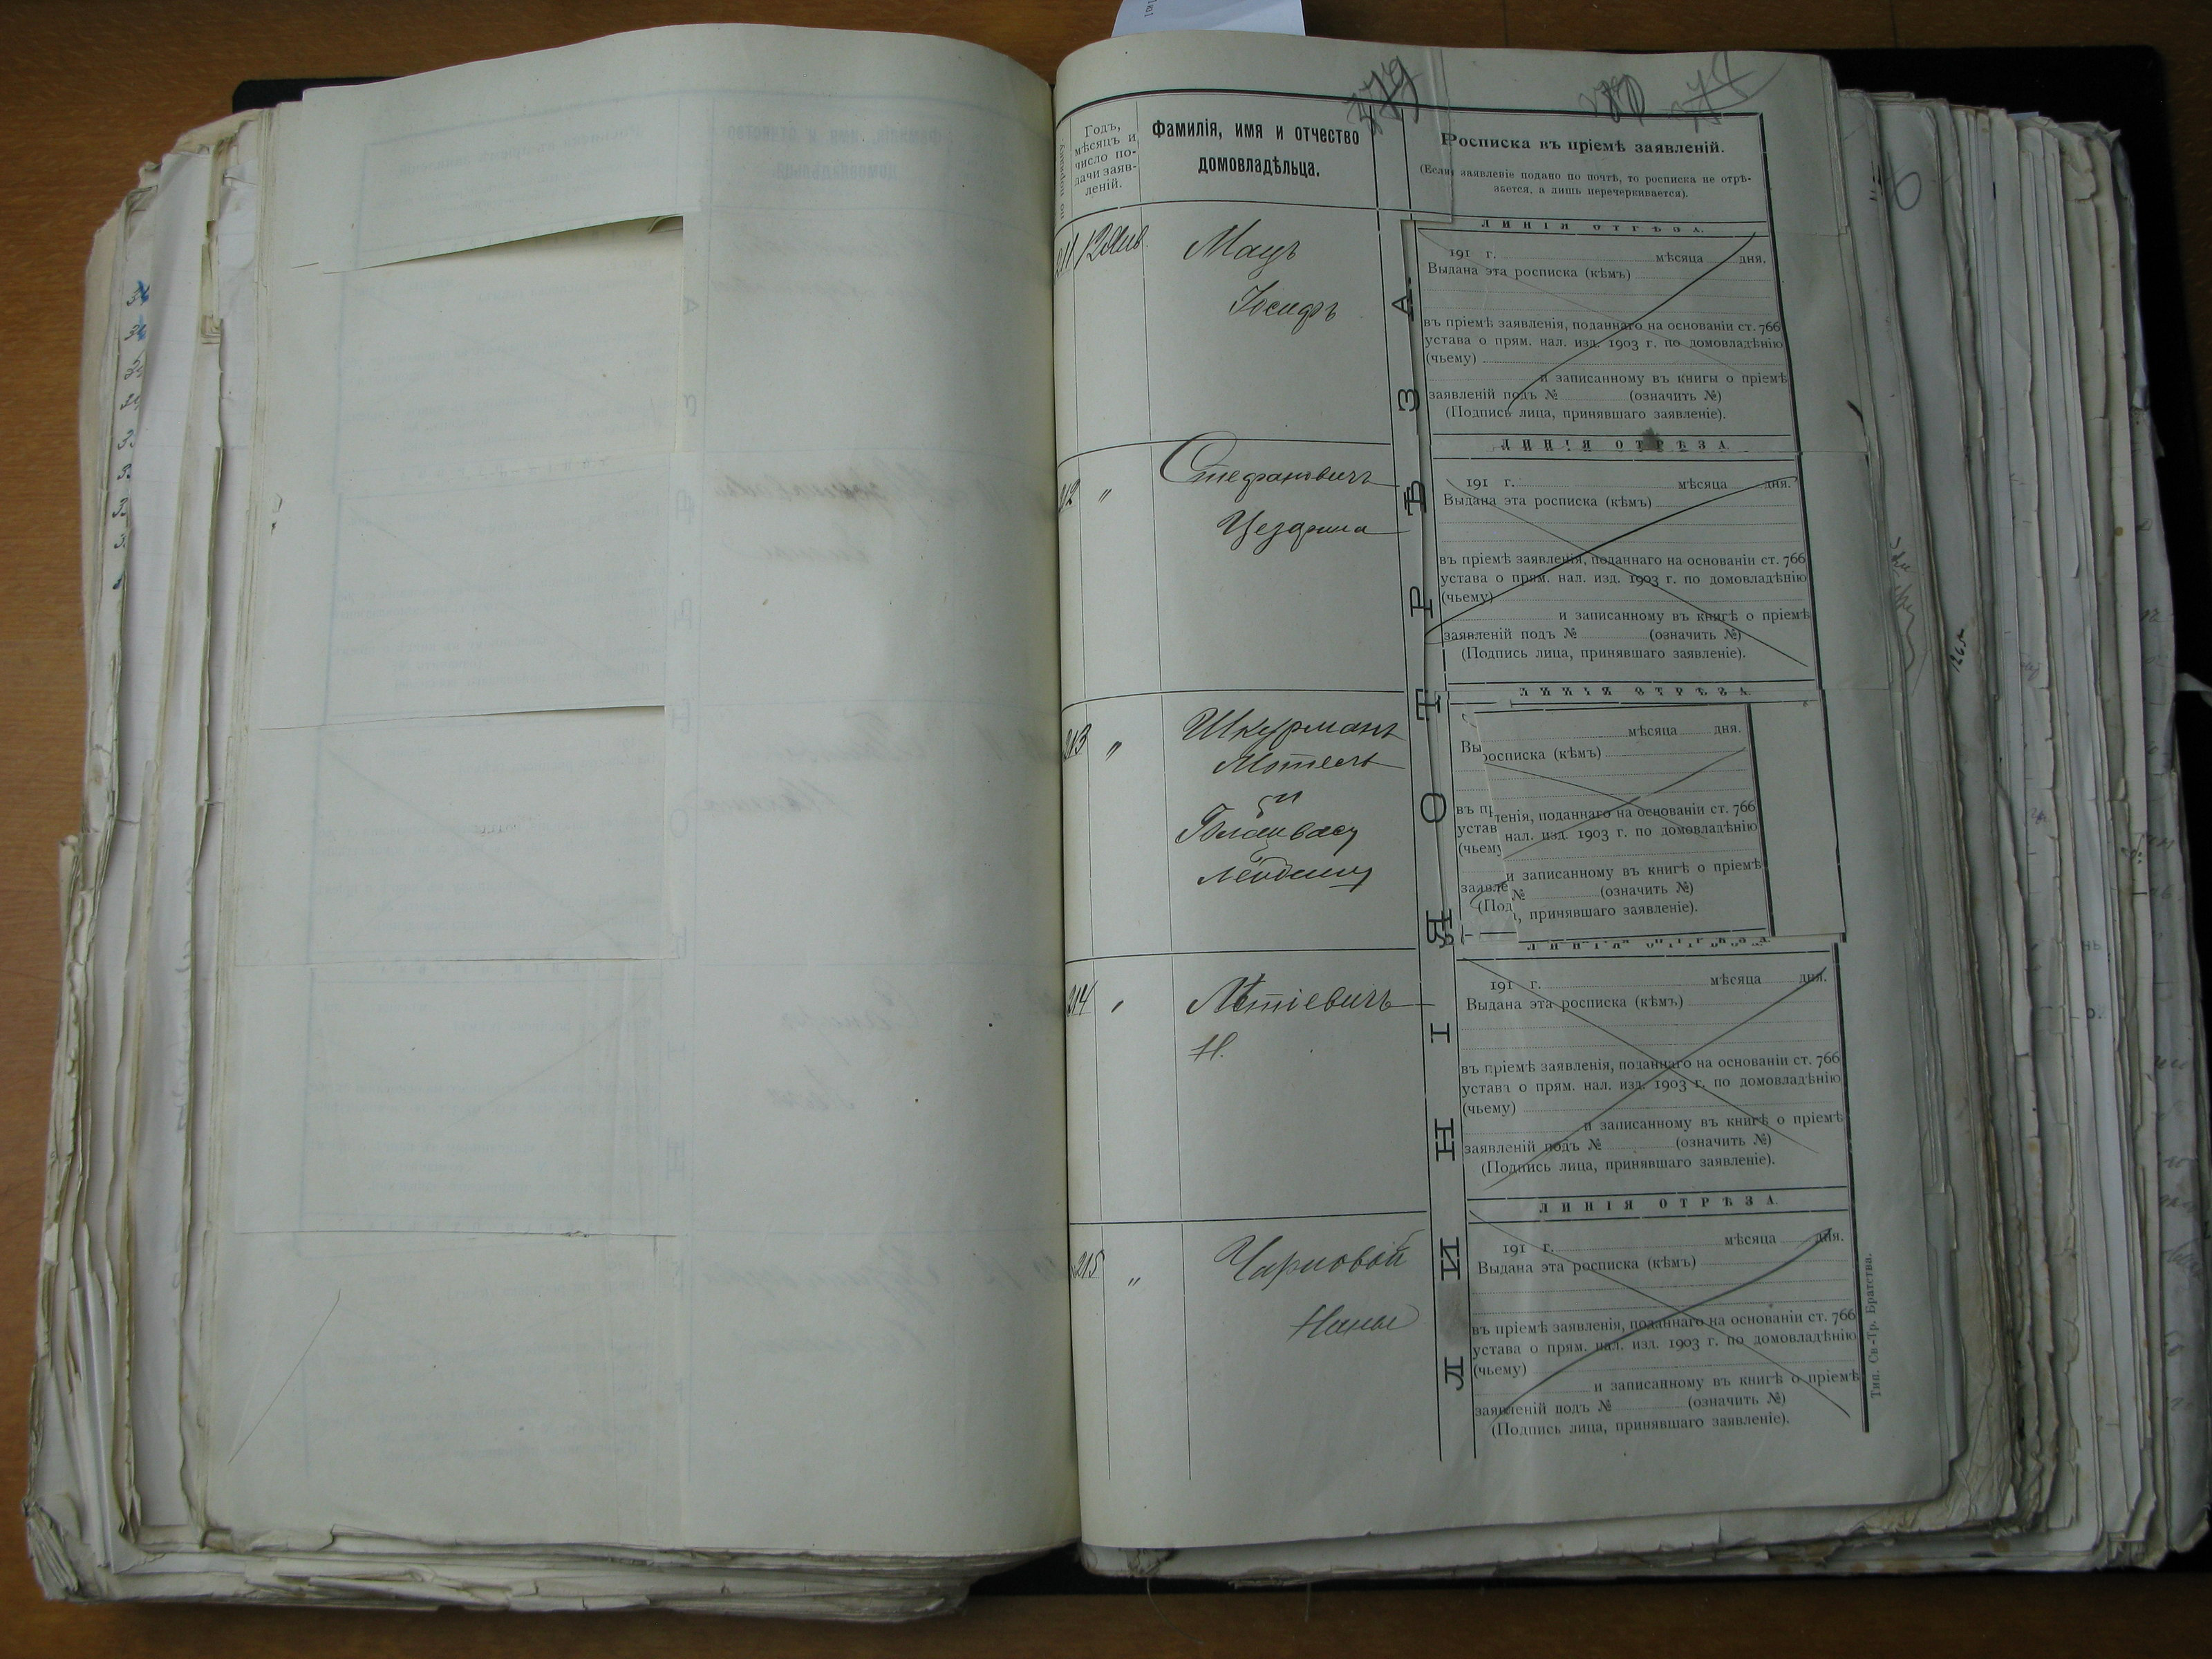 279
Годъ,
мѣсяцъ и
число по-
дачи заяв-
леній.
Фамилія, имя и отчество
домовладѣльца.
Росписка въ пріемѣ заявленій.
(Если заявленіе подано по почтѣ, то росписка не отрѣ-
зается, а лишь перечеркивается).
ЛИНІЯ ОТРѢЗА.
211 12 Янв.
Мацъ
Іосифъ
ЛИНІЯ ОТРѢЗА.
191 г. мѣсяца дня.
Выдана эта росписка (кѣмъ)
въ пріемѣ заявленія, поданнаго на основаніи ст. 766
устава о прям. нал. изд. 1903 г. по домовладѣнію
(чьему)
и записанному въ книгы о пріемѣ
заявленій подъ № (означить №)
(Подпись лица, принявшаго заявленіе).
ЛИНІЯ ОТРѢЗА.
212 "
Стефановичъ
191 г. мѣсяца дня.
Выдана эта росписка (кѣмъ)
въ пріемѣ заявленія, поданнаго на основаніи ст. 766
устава о прям. нал. изд. 1903 г. по домовладѣнію
(чьему)
и записанному въ книгѣ о пріемѣ
заявленій подъ № (означить №)
(Подпись лица, принявшаго заявленіе).
ЛИНІЯ ОТРѢЗА.
213 "
Шкурманъ
Мотель
и
мѣсяца дня.
Вы росписка (кѣмъ)
въ пр ленія, поданнаго на основаніи ст. 766
устав нал. изд. 1903 г. по домовладѣнію
(чьему
и записанному въ книгѣ о пріемѣ
заявле № (означить №)
(Под , принявшаго заявленіе).
ЛИНІЯ ОТРѢЗА.
214 "
Мотіевичъ
Н.
191 г. мѣсяца дня.
Выдана эта росписка (кѣмъ)
въ пріемѣ заявленія, поданнаго на основаніи ст. 766
устава о прям. нал. изд. 1903 г. по домовладѣнію
(чьему)
и записанному въ книгѣ о пріемѣ
заявленій подъ № (означить №)
(Подпись лица, принявшаго заявленіе).
ЛИНІЯ ОТРѢЗА.
215 "
Чарновой
Ханы
191 г. мѣсяца дня.
Выдана эта росписка (кѣмъ)
въ пріемѣ заявленія, поданнаго на основаніи ст. 766
устава о прям. нал. изд. 1903 г. по домовладѣнію
(чьему)
и записанному въ книгѣ о пріемѣ
заявленій подъ № (означить №)
(Подпись лица, принявшаго заявленіе).
Тип. Св.-Тр. Братства.